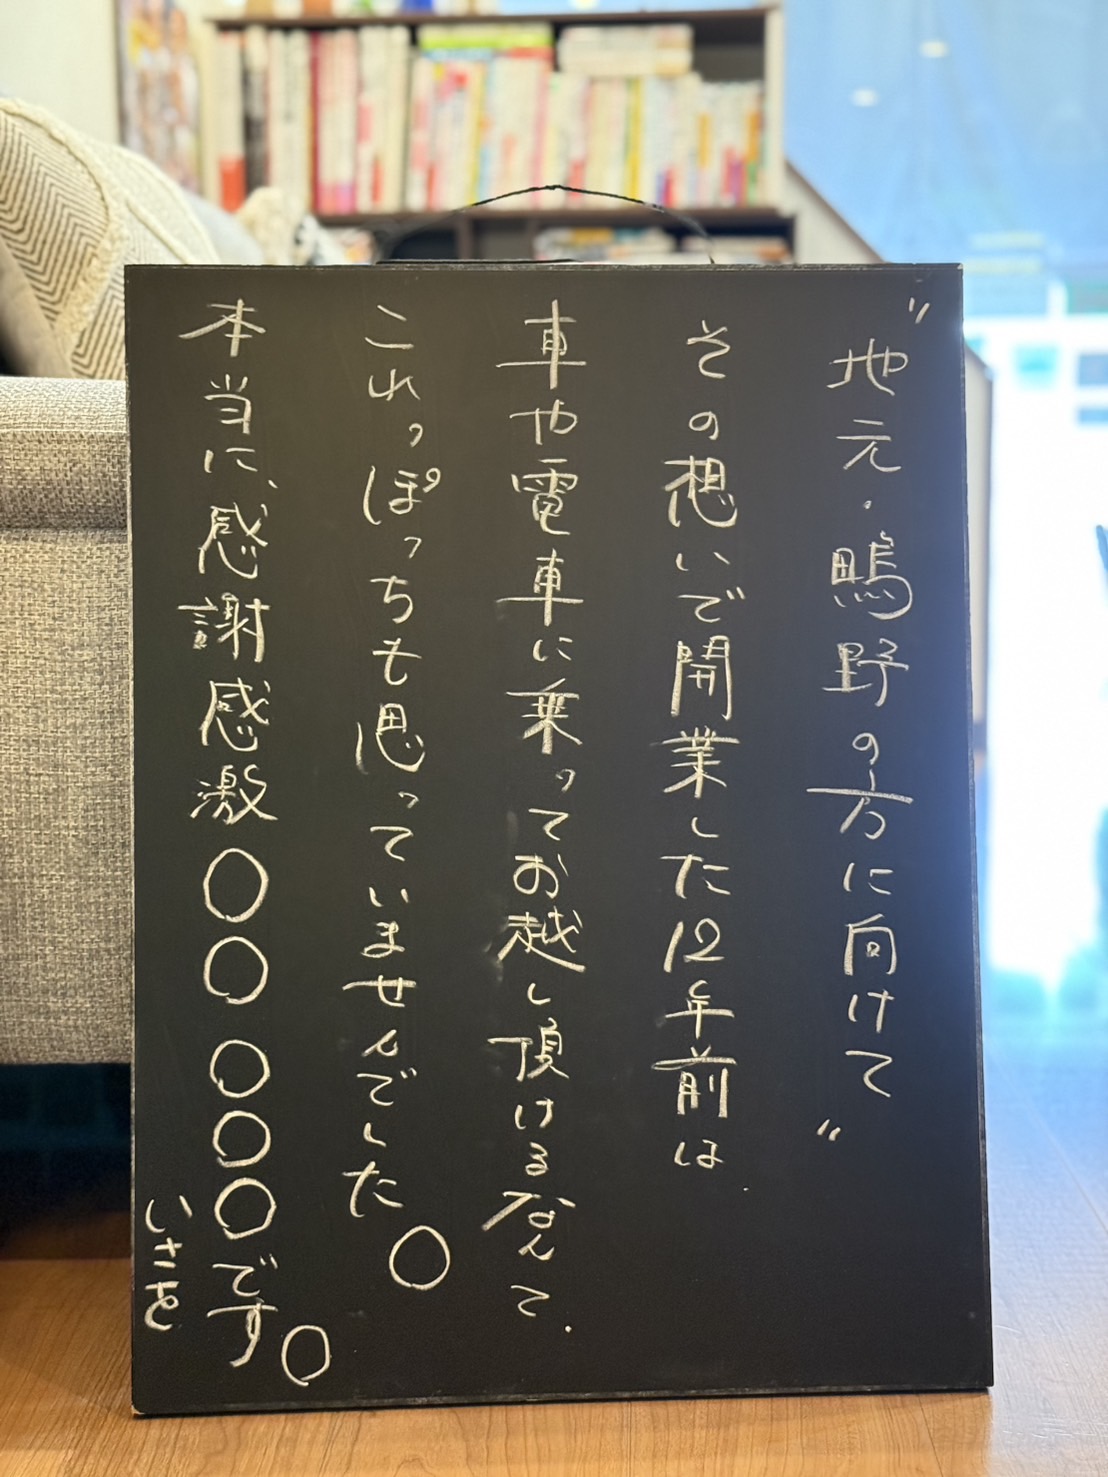 〝地元・鴫野の方に向けて〟
その想いで開業した12年前は、
車や電車に乗ってお越し頂けるなんて、
これっぽっちも思っていませんでした。
本当に、感謝感激○○○○○です。
いさを